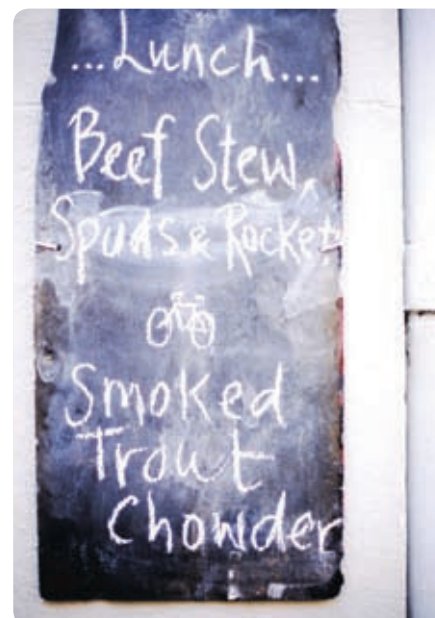 ...Lunch...
Beef Stew,
Spuds & Rocket
Smoked
Trout
Chowder